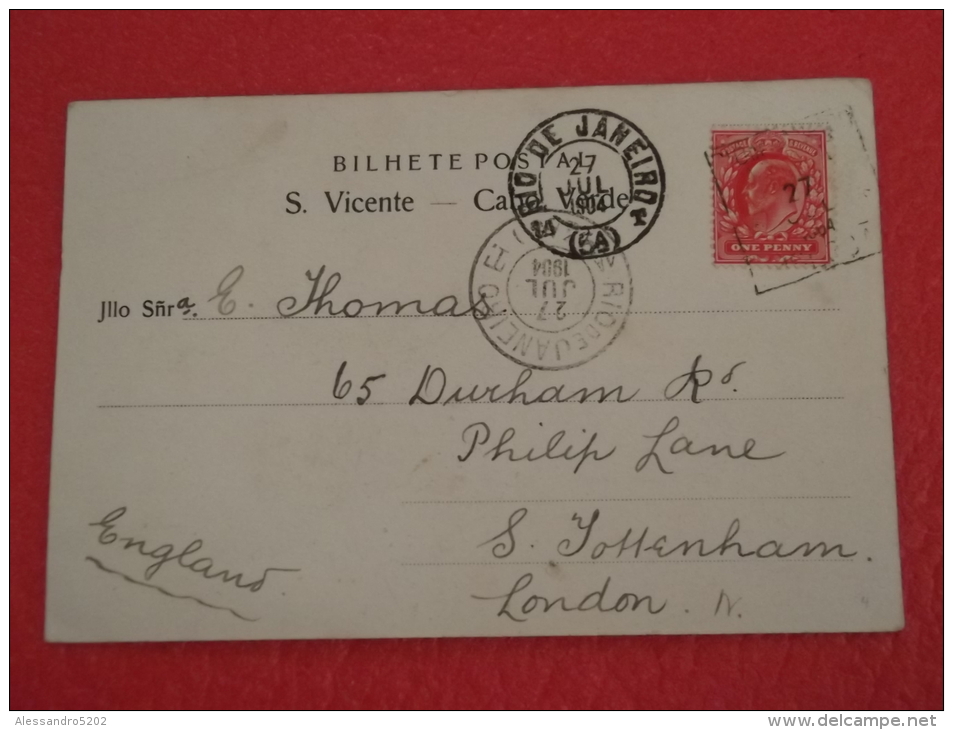 BILHETE POSTAL
S. Vicente — Cabo Verde
RIO DE JANEIRO
27
JUL
1904
(5A)
27
ONE PENNY
RIO DE JANEIRO
27
JUL
1904
Jllo Sñra. E. Thomas.
65 Durham Rd.
Philip Lane
S. Tottenham.
London. N.
England
Alessandro5202
www.delcampe.net